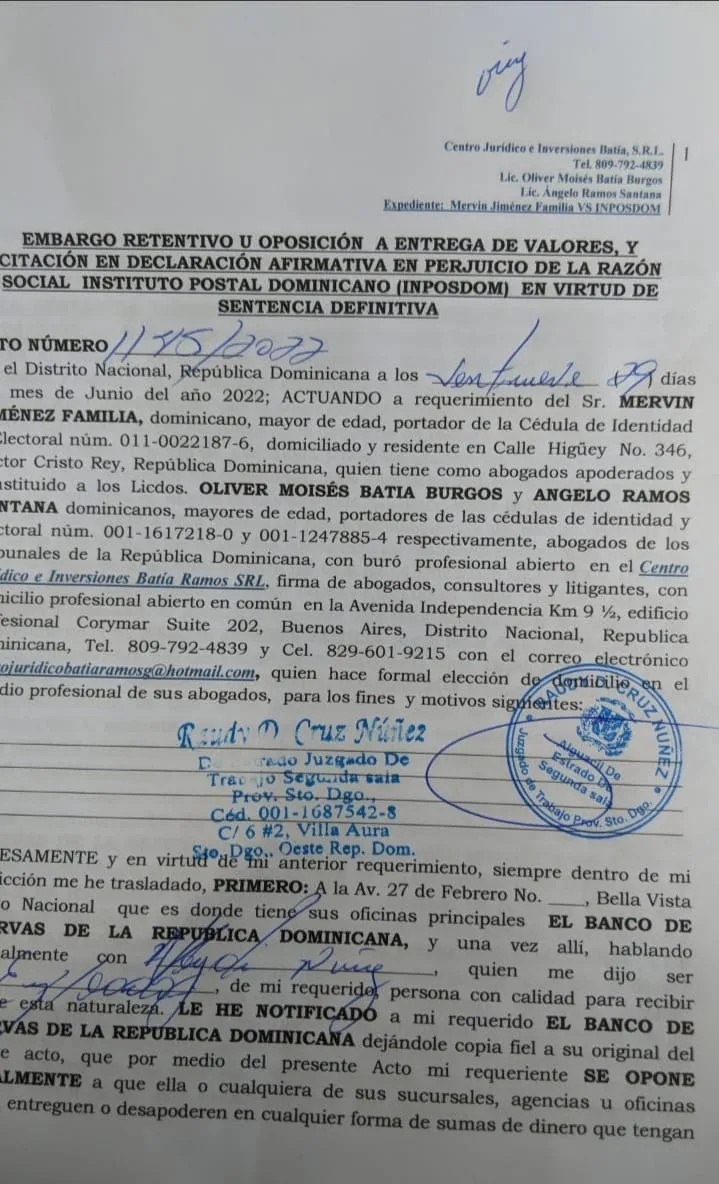 Centro Jurídico e Inversiones Batía, S.R.L.
1
Tel. 809-792-4839
Lic. Oliver Moisés Batía Burgos
Lic. Ángelo Ramos Santana
Expediente: Mervin Jiménez Familia VS INPOSDOM
EMBARGO RETENTIVO U OPOSICIÓN A ENTREGA DE VALORES, Y
CITACIÓN EN DECLARACIÓN AFIRMATIVA EN PERJUICIO DE LA RAZÓN
SOCIAL INSTITUTO POSTAL DOMINICANO (INPOSDOM) EN VIRTUD DE
SENTENCIA DEFINITIVA
TO NÚMERO 1175/2022
el Distrito Nacional, República Dominicana a los 29 días
mes de Junio del año 2022; ACTUANDO a requerimiento del Sr. MERVIN
MÉNEZ FAMILIA, dominicano, mayor de edad, portador de la Cédula de Identidad
Electoral núm. 011-0022187-6, domiciliado y residente en Calle Higüey No. 346,
ctor Cristo Rey, República Dominicana, quien tiene como abogados apoderados y
nstituido a los Licdos. OLIVER MOISÉS BATIA BURGOS y ANGELO RAMOS
NTANA dominicanos, mayores de edad, portadores de las cédulas de identidad y
ctoral núm. 001-1617218-0 y 001-1247885-4 respectivamente, abogados de los
bunales de la República Dominicana, con buró profesional abierto en el Centro
dico e Inversiones Batía Ramos SRL, firma de abogados, consultores y litigantes, con
micilio profesional abierto en común en la Avenida Independencia Km 9 ½, edificio
fesional Corymar Suite 202, Buenos Aires, Distrito Nacional, Republica
minicana, Tel. 809-792-4839 y Cel. 829-601-9215 con el correo electrónico
rojuridicobatiaramosg@hotmail.com, quien hace formal elección de domicilio en el
dio profesional de sus abogados, para los fines y motivos siguientes:
Raudy D. Cruz Núñez
Estrado Juzgado De
Trabajo Segunda sala
Prov. Sto. Dgo.,
Céd. 001-1687542-8
C/ 6 #2, Villa Aura
Sto. Dgo., Oeste Rep. Dom.
CRUZ NUÑEZ
Alguacil De
Estrado De
Segunda sala
Juzgado de Trabajo Prov. Sto. Dgo.
ESAMENTE y en virtud de mi anterior requerimiento, siempre dentro de mi
icción me he trasladado, PRIMERO: A la Av. 27 de Febrero No. ____, Bella Vista
o Nacional que es donde tiene sus oficinas principales EL BANCO DE
RVAS DE LA REPUBLICA DOMINICANA, y una vez allí, hablando
almente con , quien me dijo ser
, de mi requerido, persona con calidad para recibir
e esta naturaleza. LE HE NOTIFICADO a mi requerido EL BANCO DE
RVAS DE LA REPUBLICA DOMINICANA dejándole copia fiel a su original del
e acto, que por medio del presente Acto mi requeriente SE OPONE
ALMENTE a que ella o cualquiera de sus sucursales, agencias u oficinas
entreguen o desapoderen en cualquier forma de sumas de dinero que tengan